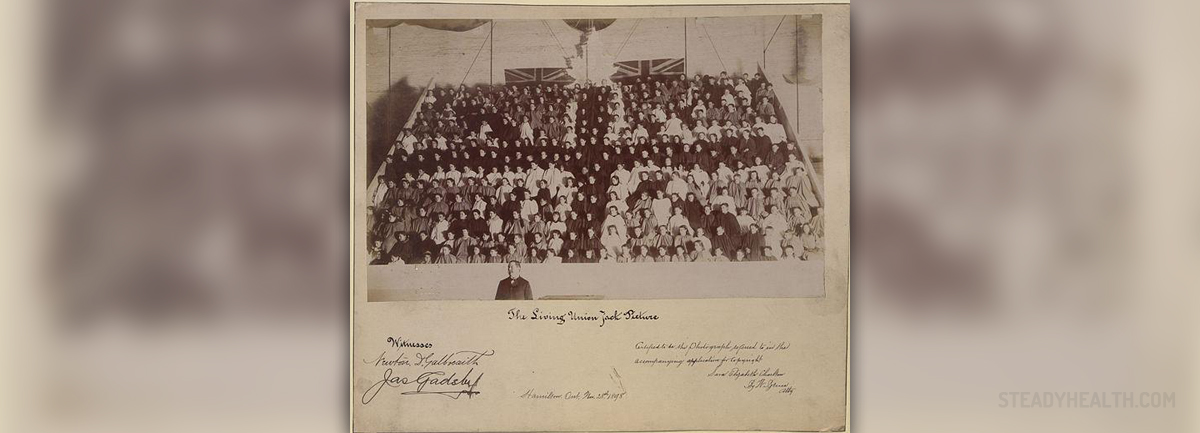 The Living Union Jack Picture
Witnesses
Newton D. Galbraith
Jas Gadsby
Hamilton Ont, 1898
Certified to be the Photograph referred to in the
accompanying application for Copyright
Sara Elizabeth Charlton
By W.
Atty
STEADYHEALTH.COM